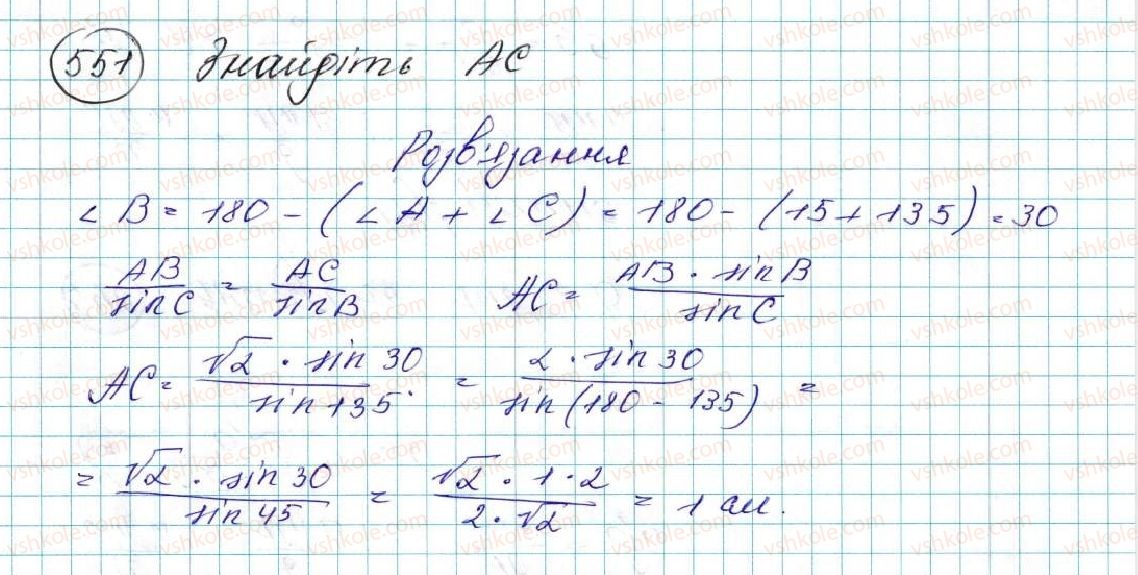 551 Знайдіть AC
Розв'язання
∠B = 180 - (∠A + ∠C) = 180 - (15 + 135) = 30
AB/sinC = AC/sinB AC = AB · sinB/sinC
AC = √2 · sin 30/sin 135 = 2 · sin 30/sin(180 - 135) =
= √2 · sin 30/sin 45 = √2 · 1 · 2/2 · √2 = 1 см.